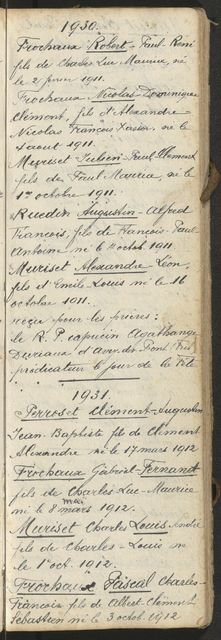 1930.
Frochaux Robert-Paul-René
fils de Charles Luc Maurice, né
le 2 février 1911.
Frochaux Nicolas-Dominique
Clément, fils d'Alexandre-
Nicolas François Xavier, né le
4 août 1911.
Muriset Julien-Paul Clément
fils de Paul Maurice, né le
1er octobre 1911.
Ruedin Augustin-Alfred
François, fils de François-Paul
Antoine né le 4 octob. 1911.
Muriset Alexandre Léon,
fils d'Emile Louis né le 16
octobre 1911.
reçu pour les prières:
le R. P. capucin Agathange
d'Aven de Pont,
prédicateur le jour de la Fête
1931.
Perroset Clément-Augustin
Jean Baptiste fils de Clément
Alexandre né le 17 mars 1912
Frochaux Gabriel-Fernand
fils de Charles Luc-Maurice
né le 8 mars 1912.
Muriset Charles Louis André
fils de Charles-Louis né
le 1er oct. 1912.
Frochaux Pascal Charles-
François fils de Albert-Clément
Sébastien né le 3 octob. 1912